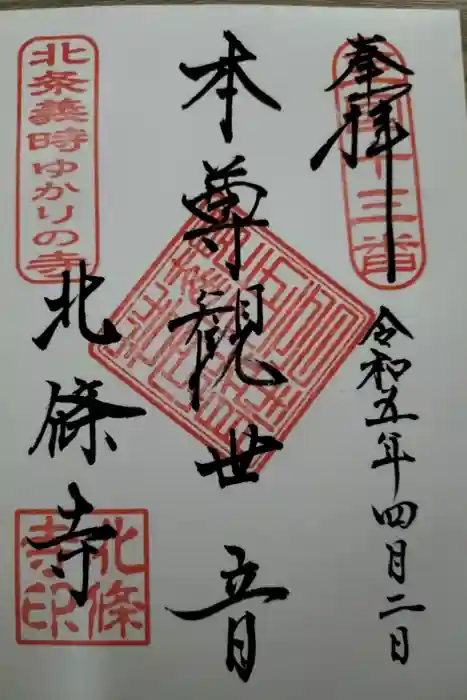 奉拝
十三番
令和五年四月二日
本尊観世音
北条義時ゆかりの寺
北條寺
北條
寺印